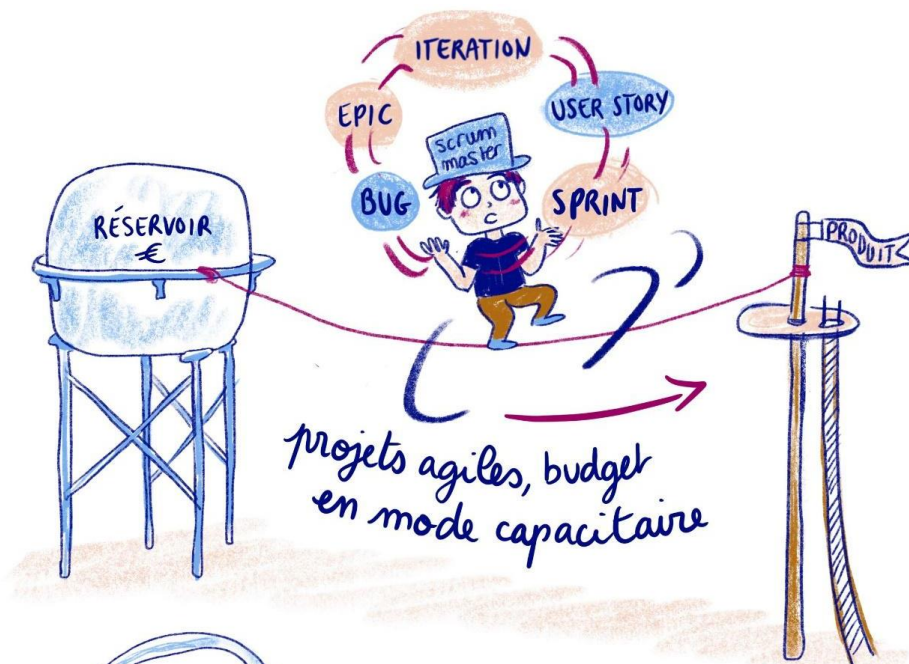 ITERATION
EPIC
USER STORY
scrum
master
BUG
SPRINT
RÉSERVOIR
€
PRODUIT
projets agiles, budget
en mode capacitaire